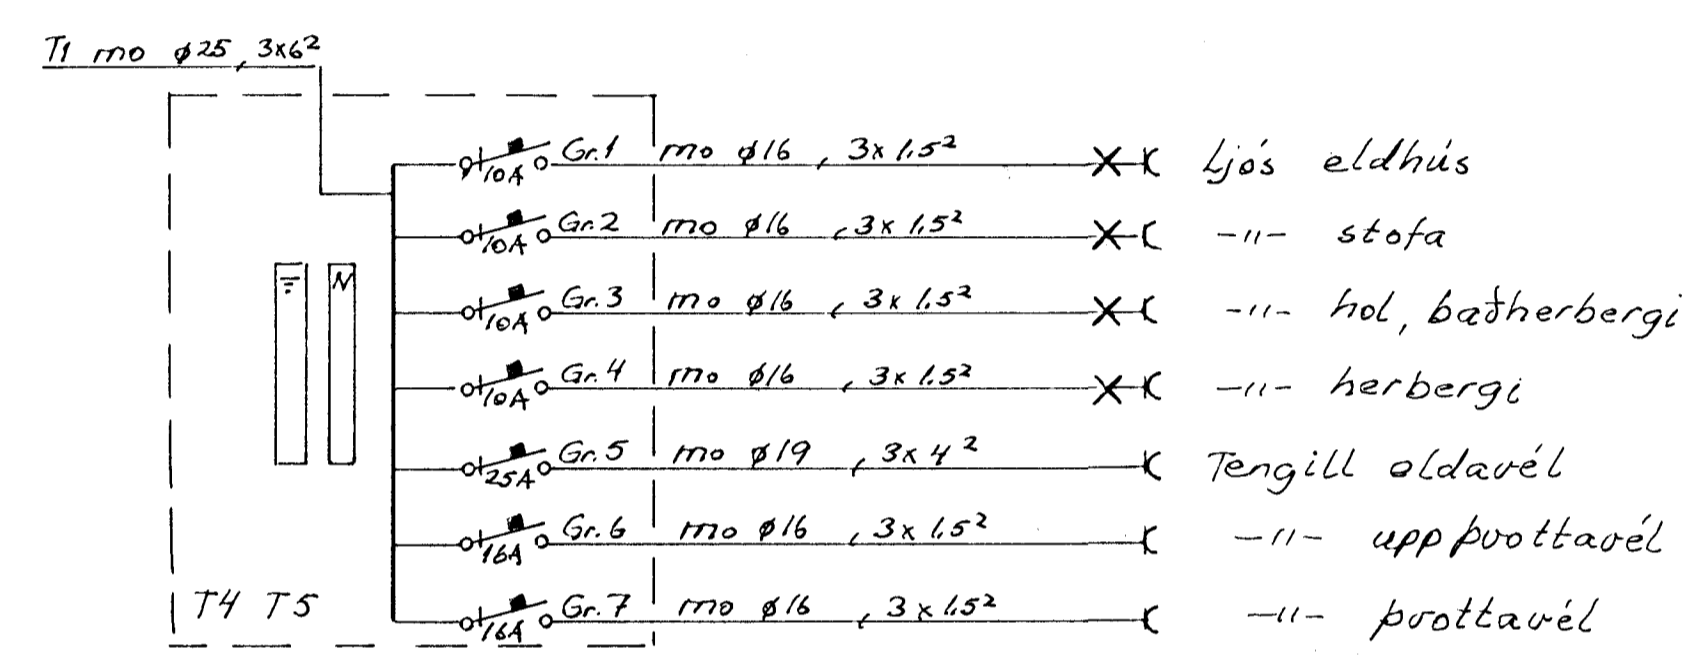 T1 mo ø25, 3x6²
Gr.1 mo ø16, 3x1.5² Ljós eldhús
10A
Gr.2 mo ø16, 3x1.5² -〃- stofa
10A
Gr.3 mo ø16, 3x1.5² -〃- hol, baðherbergi
10A
N
Gr.4 mo ø16, 3x1.5² -〃- herbergi
10A
Gr.5 mo ø19, 3x4² Tengill eldavél
25A
Gr.6 mo ø16, 3x1.5² -〃- uppþvottavél
16A
T4 T5 Gr.7 mo ø16, 3x1.5² -〃- þvottavél
16A